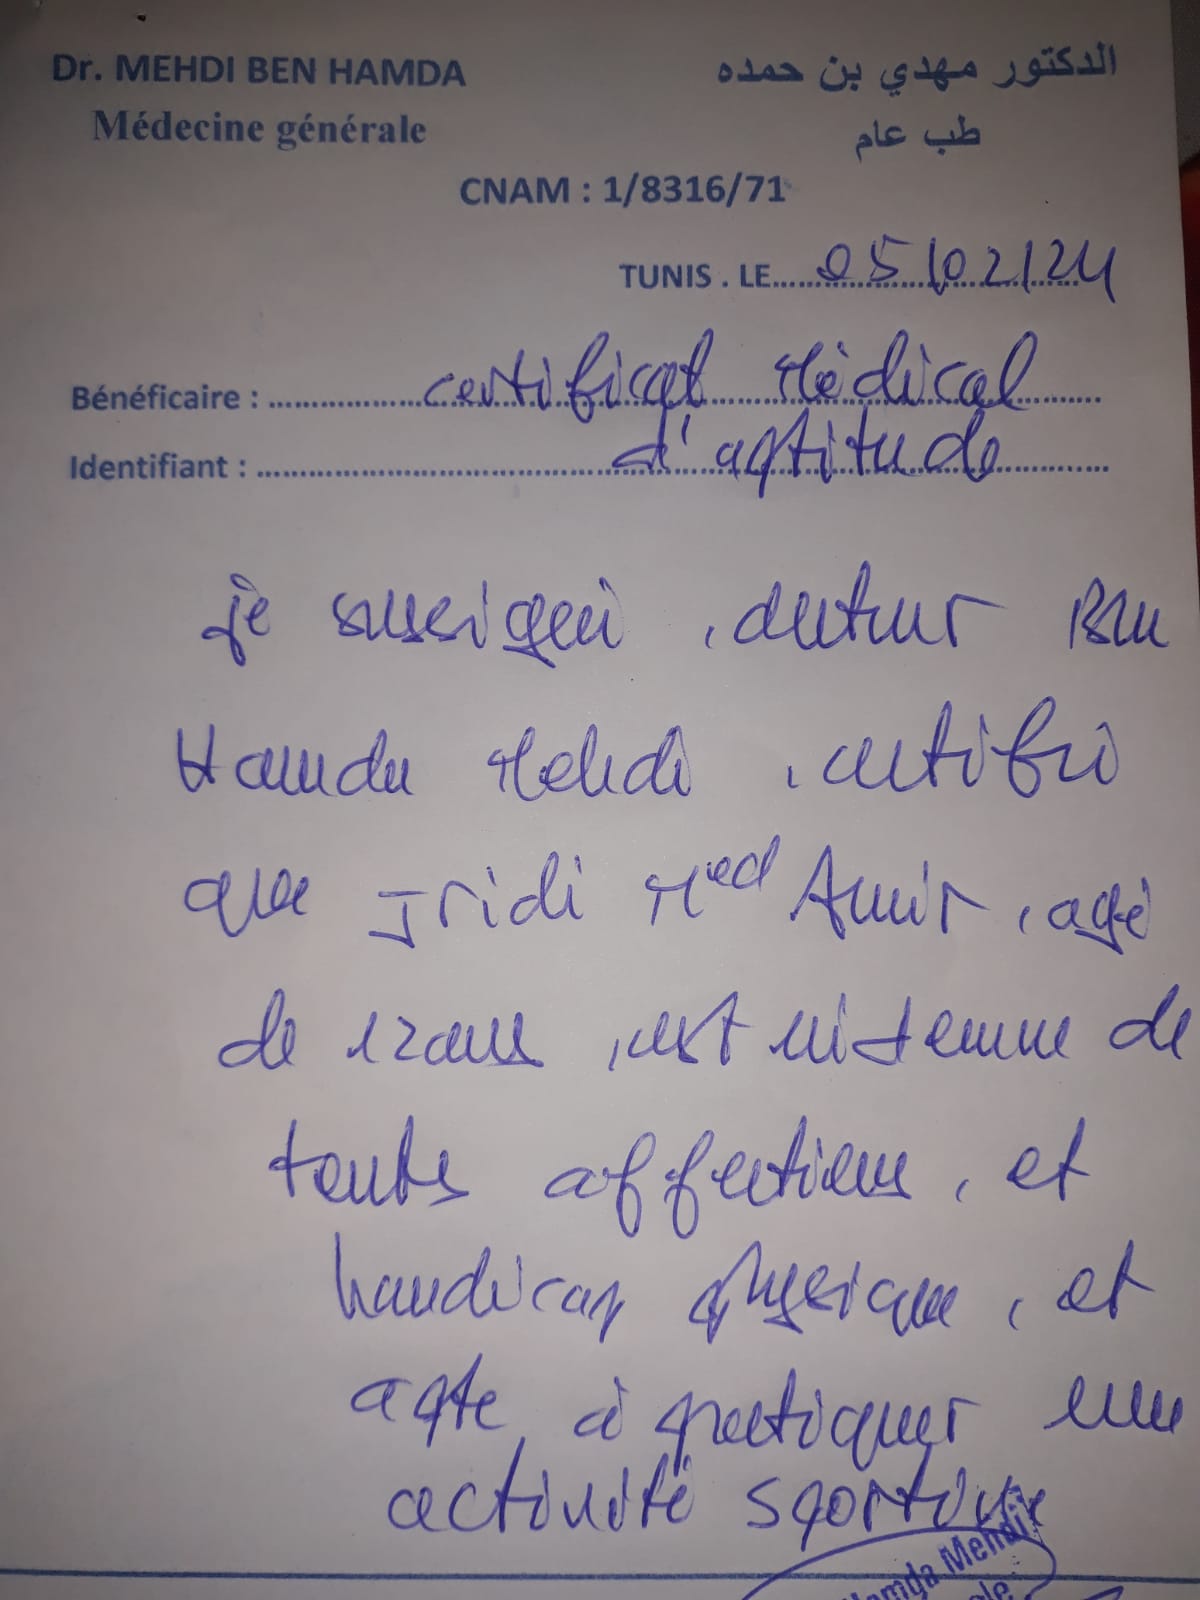 Dr. MEHDI BEN HAMDA
الدكتور مهدي بن حمده
Médecine générale
طب عام
CNAM : 1/8316/71
TUNIS . LE 05/02/24
Bénéficaire : certificat Médical
Identifiant : d'aptitude
je soussigné, docteur Ben
Hamda Mehdi, certifie
que Jridi Med Amir, agé
de 12 ans, est indemne de
toutes affections, et
handicap physique, et
apte à pratiquer une
activité sportive
Hamda Mehdi